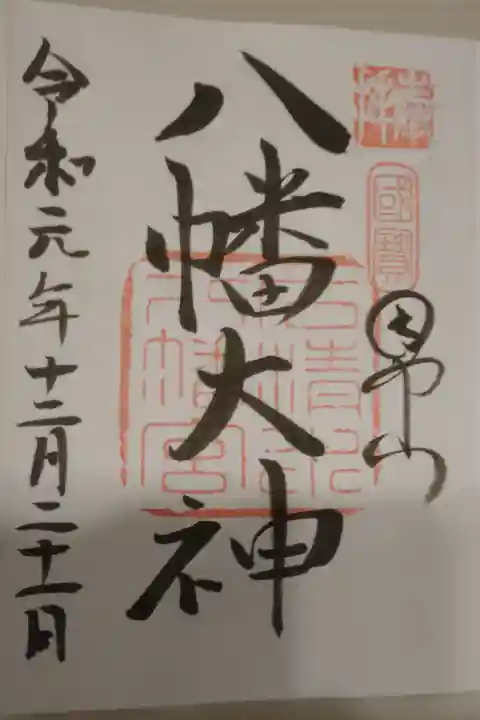 奉拝
國寶
男山
八幡大神
石清水八幡宮
令和元年十二月二十一日